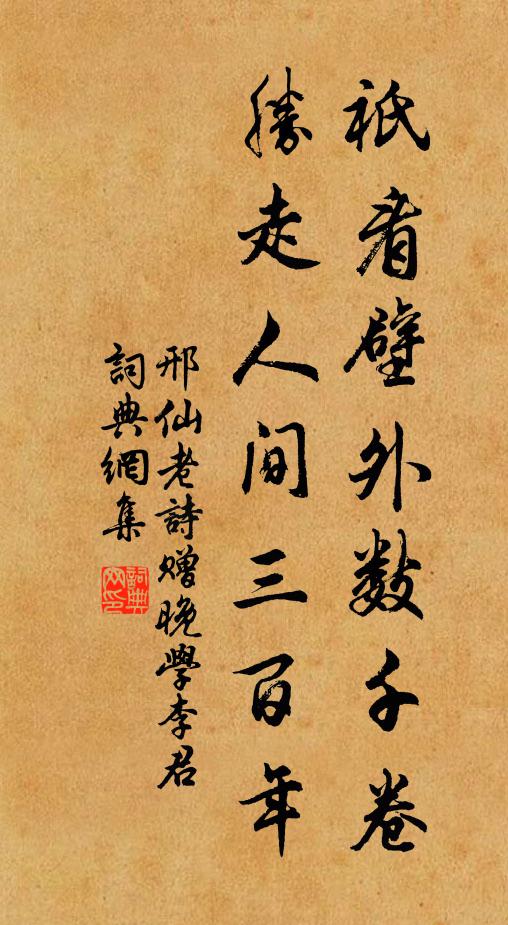 祇看壁外数千卷
勝走人间三百年
邢仙老詩贈晚學李君
詞典網集
詞典網印